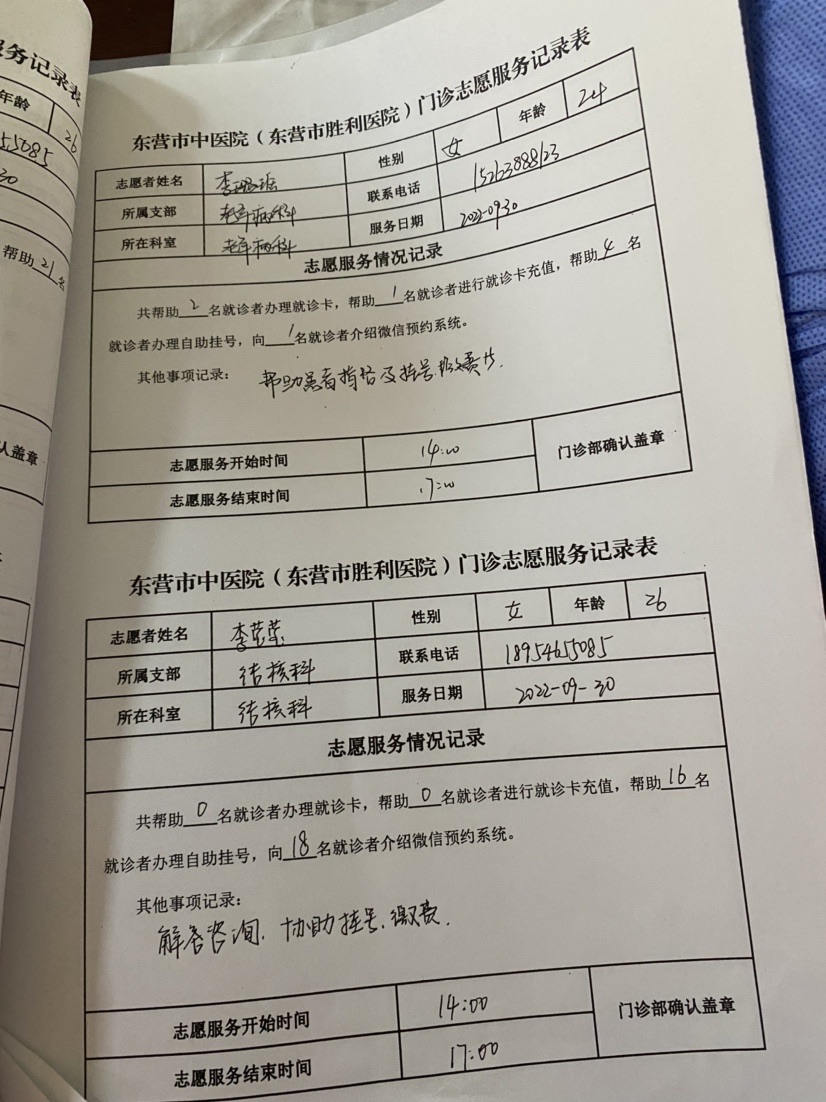 务记录表
年龄
26
55085
30
帮助21名
认盖章
东营市中医院（东营市胜利医院）门诊志愿服务记录表
志愿者姓名 李 性别 女 年龄 24
所属支部 老年病科 联系电话 15263888123
所在科室 老年病科 服务日期 2022-09.30
志愿服务情况记录
共帮助2名就诊者办理就诊卡，帮助1名就诊者进行就诊卡充值，帮助4名
就诊者办理自助挂号，向1名就诊者介绍微信预约系统。
其他事项记录： 帮助患者 及挂号
志愿服务开始时间 14:00 门诊部确认盖章
志愿服务结束时间 17:00
东营市中医院（东营市胜利医院）门诊志愿服务记录表
志愿者姓名 李莹莹 性别 女 年龄 26
所属支部 结核科 联系电话 18954655085
所在科室 结核科 服务日期 2022-09-30
志愿服务情况记录
共帮助0名就诊者办理就诊卡，帮助0名就诊者进行就诊卡充值，帮助16名
就诊者办理自助挂号，向18名就诊者介绍微信预约系统。
其他事项记录：
解答咨询.协助挂号.缴费.
志愿服务开始时间 14:00 门诊部确认盖章
志愿服务结束时间 17:00